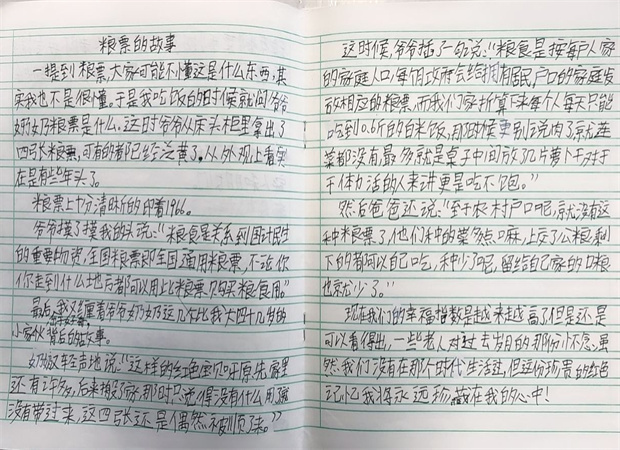 粮票的故事
一提到粮票,大家可能不懂这是什么东西,其
实我也不是很懂。于是我吃饭的时候就问爷爷
奶奶粮票是什么。这时爷爷从床头柜里拿出了
四张粮票,可有的都已经泛黄了。从外观上看实
在是有些年头了。
粮票上十分清晰的印着1966。
爷爷摸了摸我的头说:“粮食是关系到国计民生
的重要物资,全国粮票即全国通用粮票,不论你
你走到什么地方都可以用此粮票购买粮食用。”
最后,我又缠着爷爷奶奶这几个比我大四十几岁的
小家伙背后的故事。
奶奶轻声地说:“这样的红色宝贝呀原先家里
还有许多,后来搬了家,那时只觉得没有什么用就
没有带过来,这四张还是偶然被顺了来。”
这时候,爷爷插了一句说:“粮食是按每户人家
的家庭人口,每个月政府会给拥有居民户口的家庭发
放相应的粮票,而我们家折算下来每个人每天只能
吃到0.6斤的白米饭,那时候别说肉了就连
菜都没有,最多就是桌子中间放几片萝卜干,对于
干体力活的人来讲更是吃不饱。”
然后爸爸还说:“至于农村户口呢,就没有这
种粮票了,他们种的粮食嘛,上交了公粮剩
下的都可以自己吃,种少了呢,留给自己家的口粮
也就少了。”
现在我们的幸福指数是越来越高了但是还是
可以看得出,一些老人对过去岁月的那份怀念,虽
然我们没有在那个时代生活过,但这份珍贵的红色
记忆我将永远珍藏在我的心中!